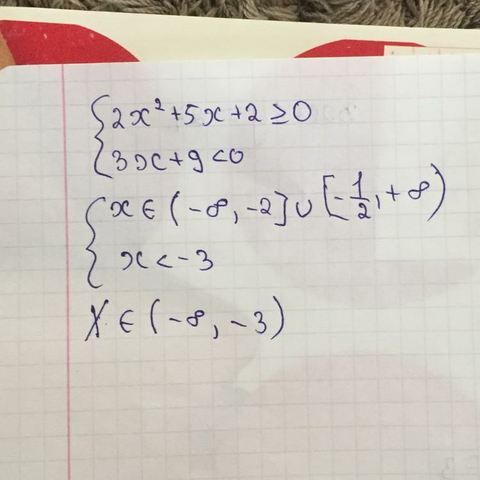 {2x²+5x+2≥0
{3x+9<0
{x∈(-∞,-2]∪[-1/2,+∞)
{x<-3
X∈(-∞,-3)